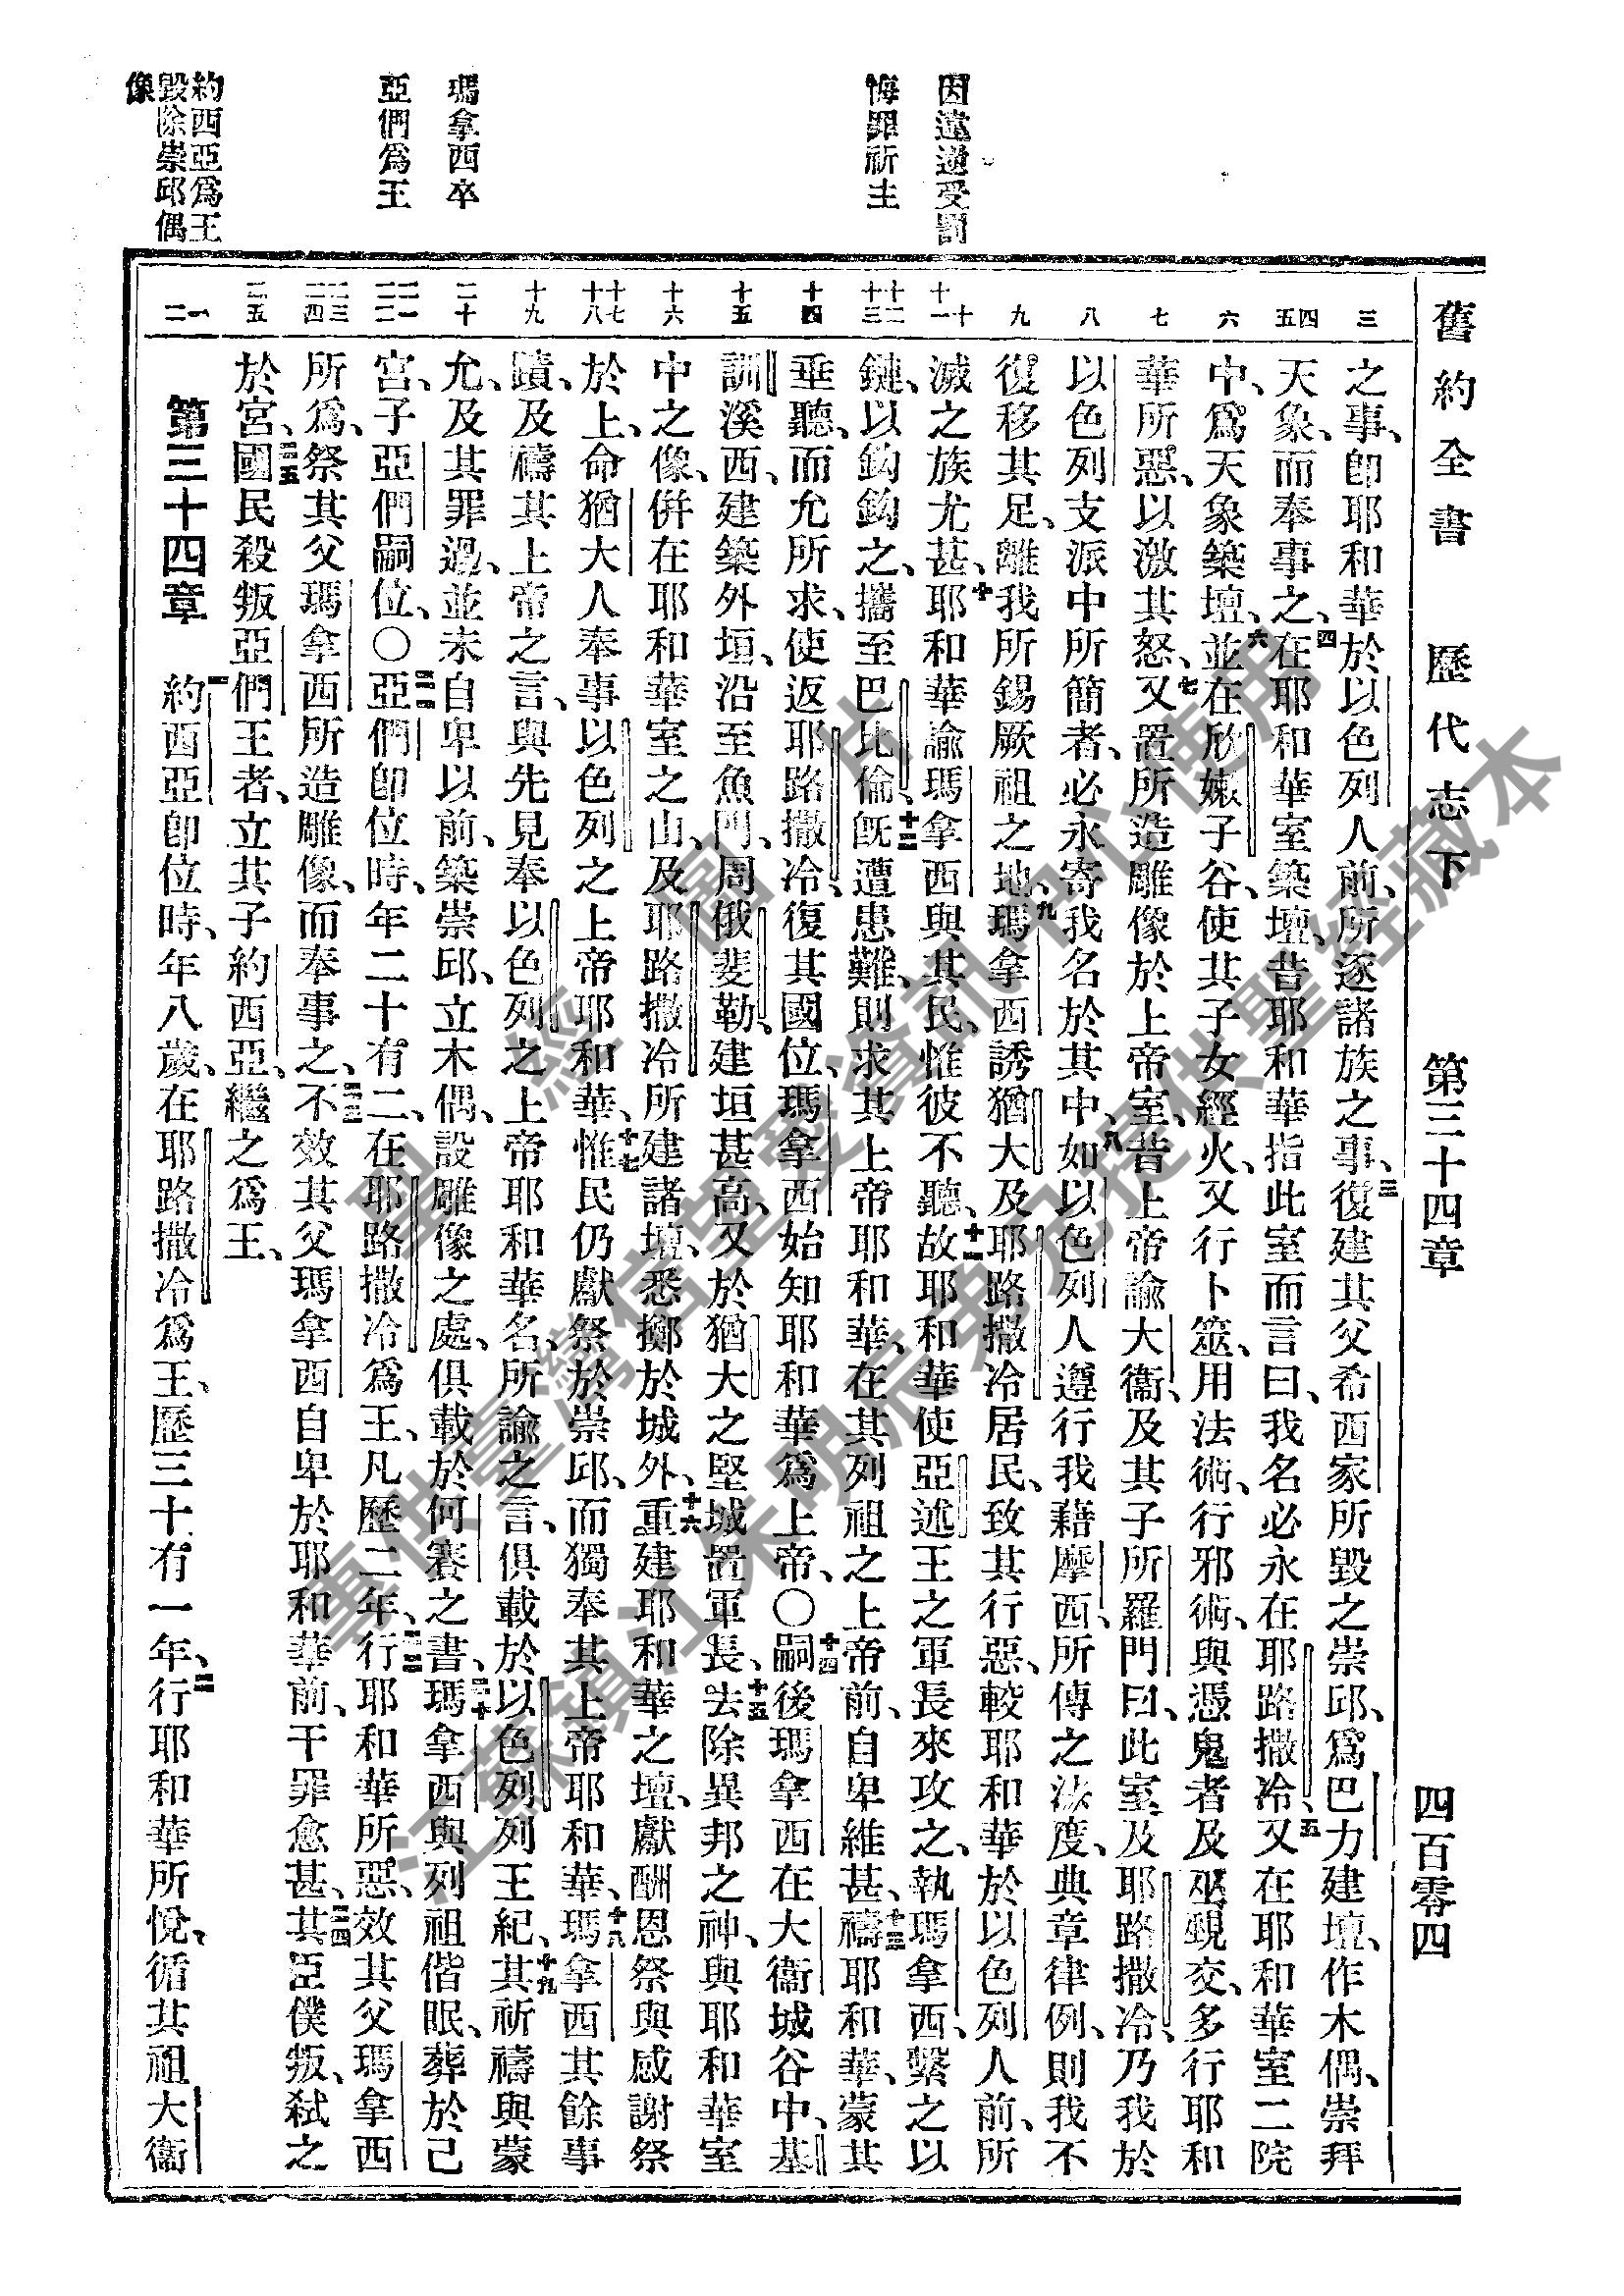 舊約全書 歷代志下 第三十四章 四百零四
因違逆受罰
悔罪祈主
瑪拿西卒
亞們爲王
約西亞爲王
毀除崇邱偶
像
三
四
五
六
七
八
九
十
十一
十二
十三
十四
十五
十六
十七
十八
十九
二十
二一
二二
二三
二四
二五
一
二
之事、卽耶和華於以色列人前、所逐諸族之事、三復建其父希西家所毀之崇邱、爲巴力建壇、作木偶、崇拜
天象、而奉事之、四在耶和華室築壇、昔耶和華指此室而言曰、我名必永在耶路撒冷、五又在耶和華室二院
中、爲天象築壇、六並在欣嫩子谷、使其子女經火、又行卜筮、用法術、行邪術、與憑鬼者及巫覡交、多行耶和
華所惡、以激其怒、七又置所造雕像於上帝室、昔上帝諭大衞、及其子所羅門曰、此室及耶路撒冷、乃我於
以色列支派中所簡者、必永寄我名於其中、八如以色列人遵行我藉摩西、所傳之法度、典章律例、則我不
復移其足、離我所錫厥祖之地、九瑪拿西誘猶大及耶路撒冷居民、致其行惡、較耶和華於以色列人前、所
滅之族尤甚、十耶和華諭瑪拿西與其民、惟彼不聽、十一故耶和華使亞述王之軍長來攻之、執瑪拿西、繫之以
鏈、以鈎鈎之、攜至巴比倫、十二旣遭患難、則求其上帝耶和華、在其列祖之上帝前、自卑維甚、十三禱耶和華、蒙其
垂聽、而允所求、使返耶路撒冷、復其國位、瑪拿西始知耶和華爲上帝、〇十四嗣後瑪拿西在大衞城谷中、基
訓溪西、建築外垣、沿至魚門、周俄斐勒、建垣甚高、又於猶大之堅城置軍長、十五去除異邦之神、與耶和華室
中之像、併在耶和華室之山、及耶路撒冷所建諸壇、悉擲於城外、十六重建耶和華之壇、獻酬恩祭與感謝祭
於上、命猶大人奉事以色列之上帝耶和華、十七惟民仍獻祭於崇邱、而獨奉其上帝耶和華、十八瑪拿西其餘事
蹟、及禱其上帝之言、與先見奉以色列之上帝耶和華名、所諭之言、俱載於以色列列王紀、十九其祈禱與蒙
允、及其罪過、並未自卑以前、築崇邱、立木偶、設雕像之處、俱載於何賽之書、二十瑪拿西與列祖偕眠、葬於己
宮、子亞們嗣位、〇二一亞們卽位時、年二十有二、在耶路撒冷爲王、凡歷二年、二二行耶和華所惡、效其父瑪拿西
所爲、祭其父瑪拿西所造雕像、而奉事之、二三不效其父瑪拿西自卑於耶和華前、干罪愈甚、二四其臣僕叛、弒之
於宮、二五國民殺叛亞們王者、立其子約西亞、繼之爲王、
第三十四章 一約西亞卽位時、年八歲、在耶路撒冷爲王、歷三十有一年、二行耶和華所悅、循其祖大衞
聖經圖片
專供臺灣信望愛資訊中心使用
江蘇鎮江朱明辰弟兄提供聖經藏本